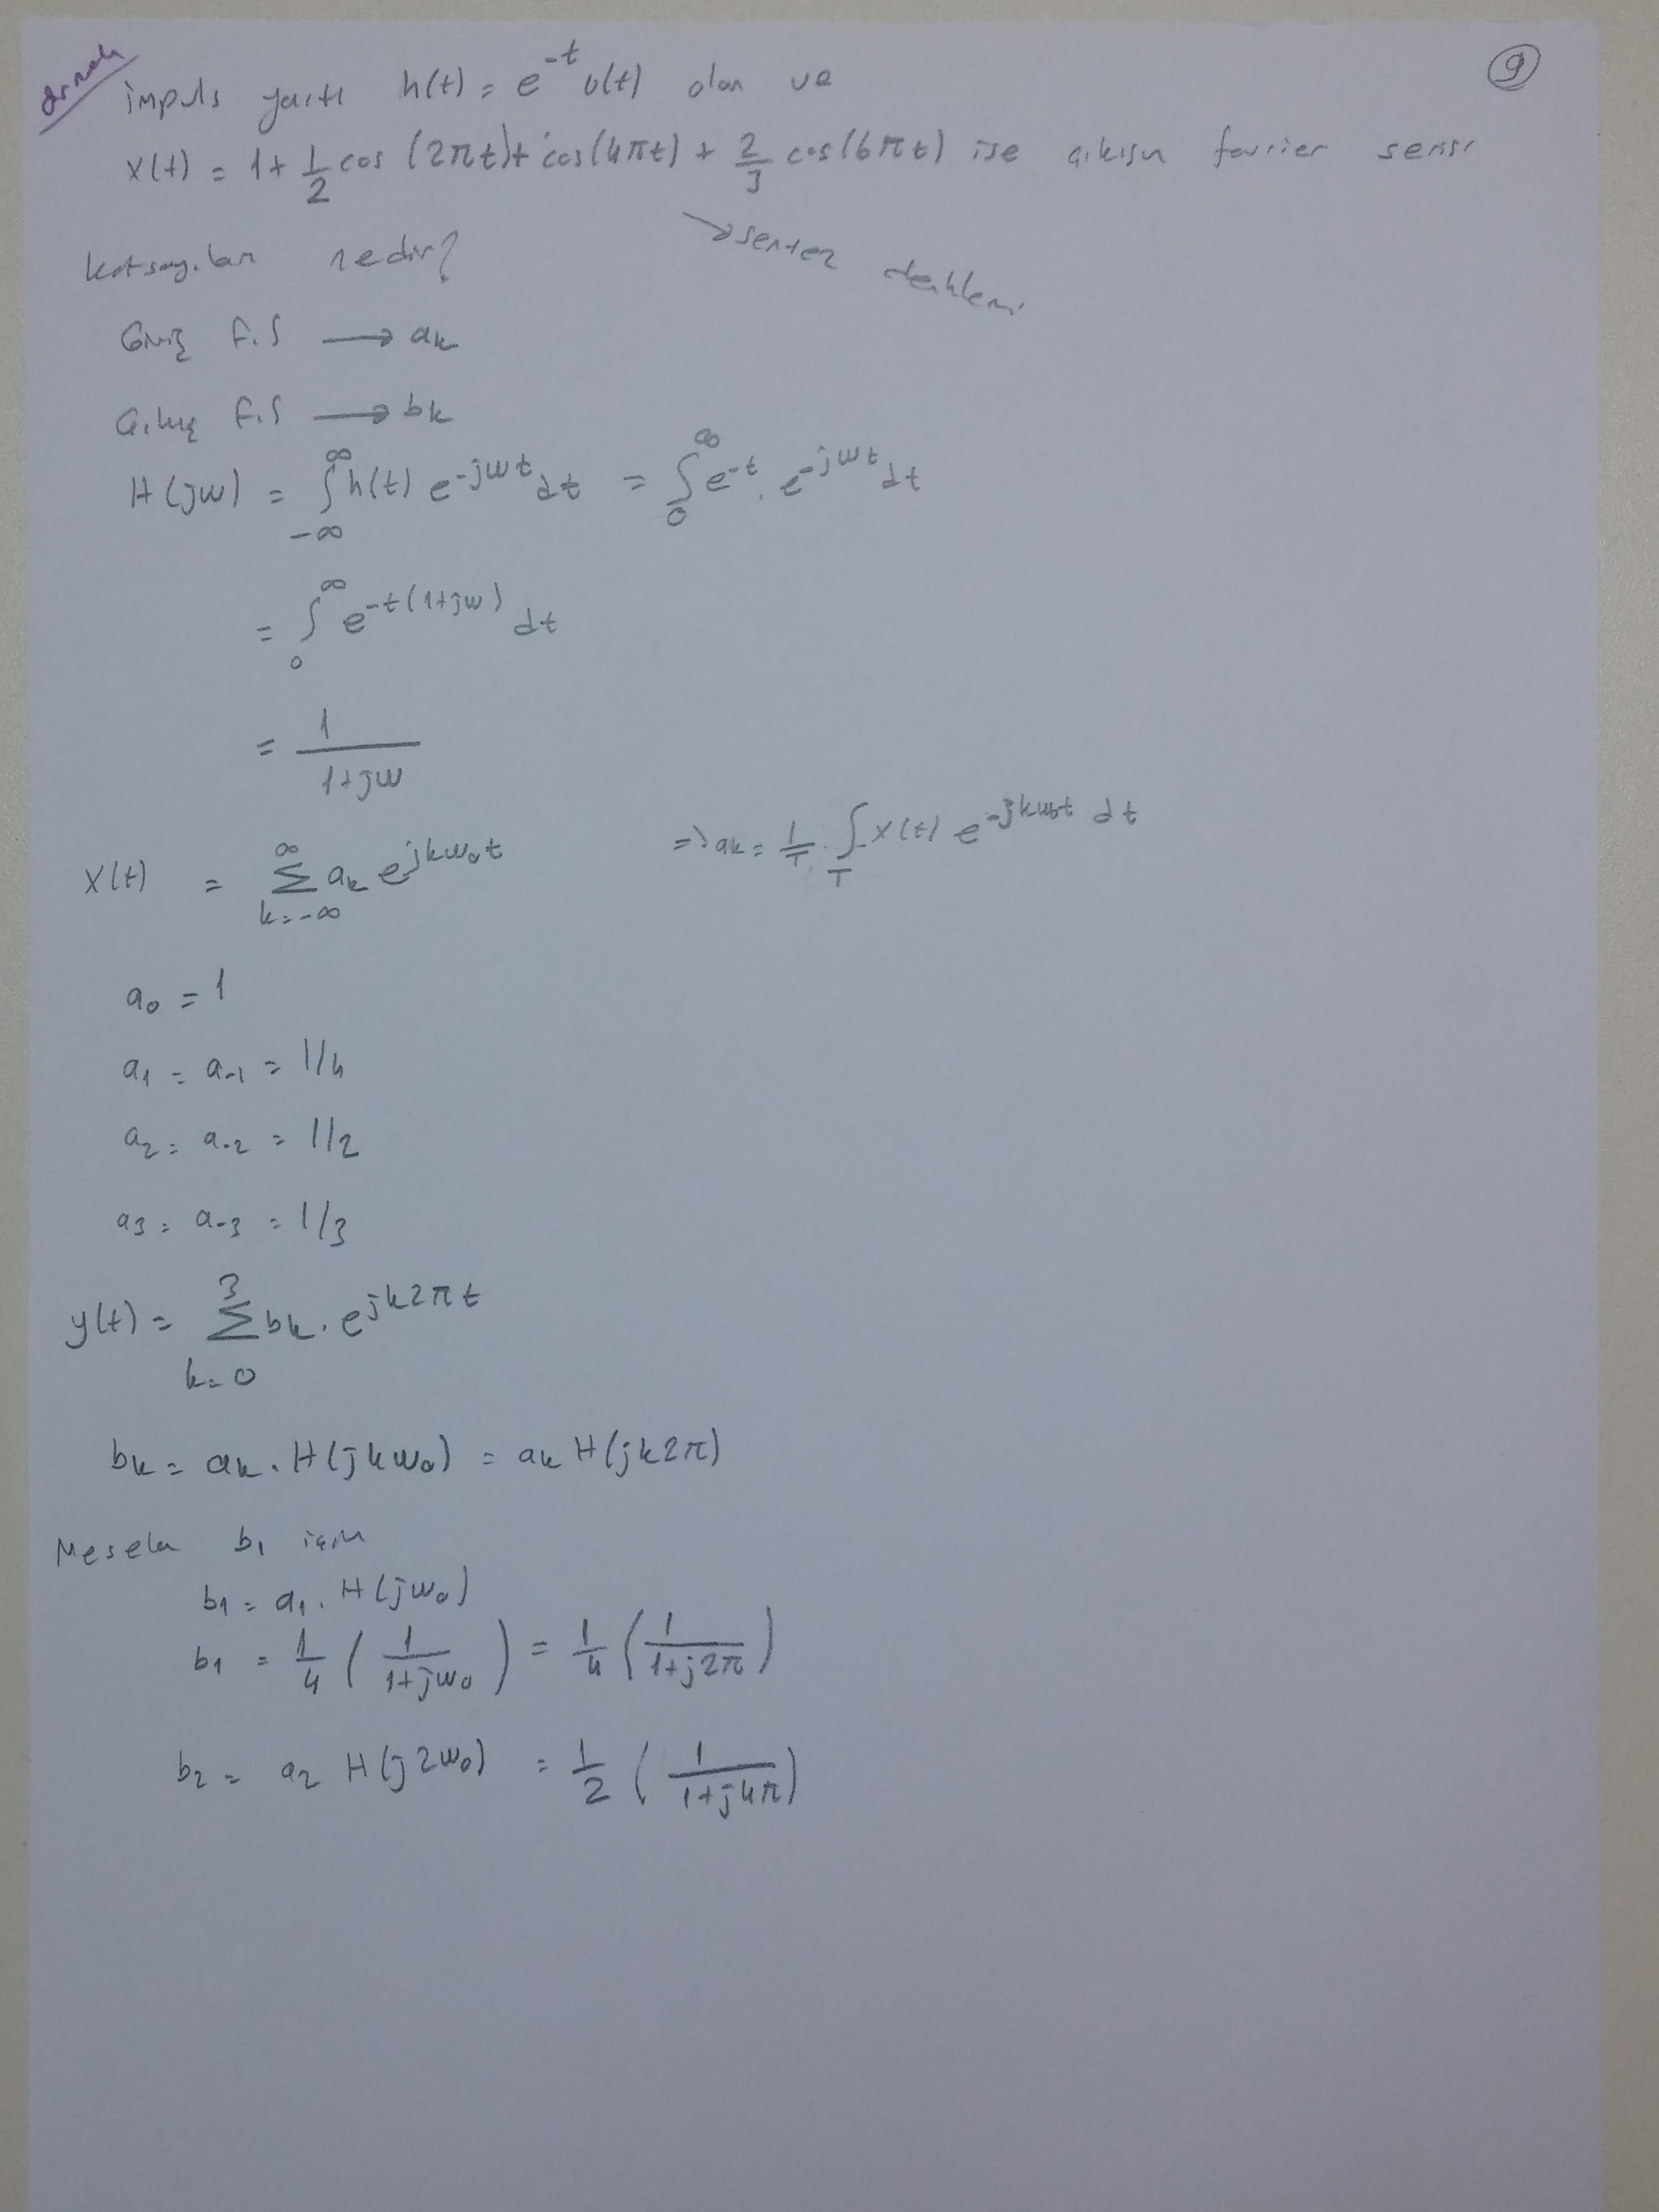 örnek
⑨
impuls yanıtı h(t) = e^-t u(t) olan ve
x(t) = 1 + 1/2 cos (2πt) + cos(4πt) + 2/3 cos(6πt) ise çıkışın fourier serisi
katsayıları nedir?
→ sentez denklemi
Giriş F.S → ak
Çıkış F.S → bk
H(jw) = ∫_-∞^∞ h(t) e^-jwt dt = ∫_0^∞ e^-t . e^-jwt dt
= ∫_0^∞ e^-t(1+jw) dt
= 1/(1+jw)
x(t) = ∑_k=-∞^∞ ak e^jkw0t ⇒ ak = 1/T . ∫_T x(t) e^-jkw0t dt
a0 = 1
a1 = a-1 = 1/4
a2 = a-2 = 1/2
a3 = a-3 = 1/3
y(t) = ∑_k=0^3 bk . e^jk2πt
bk = ak . H(jkw0) = ak H(jk2π)
Mesela b1 için
b1 = a1 . H(jw0)
b1 = 1/4 ( 1/(1+jw0) ) = 1/4 ( 1/(1+j2π) )
b2 = a2 H(j2w0) = 1/2 ( 1/(1+j4π) )